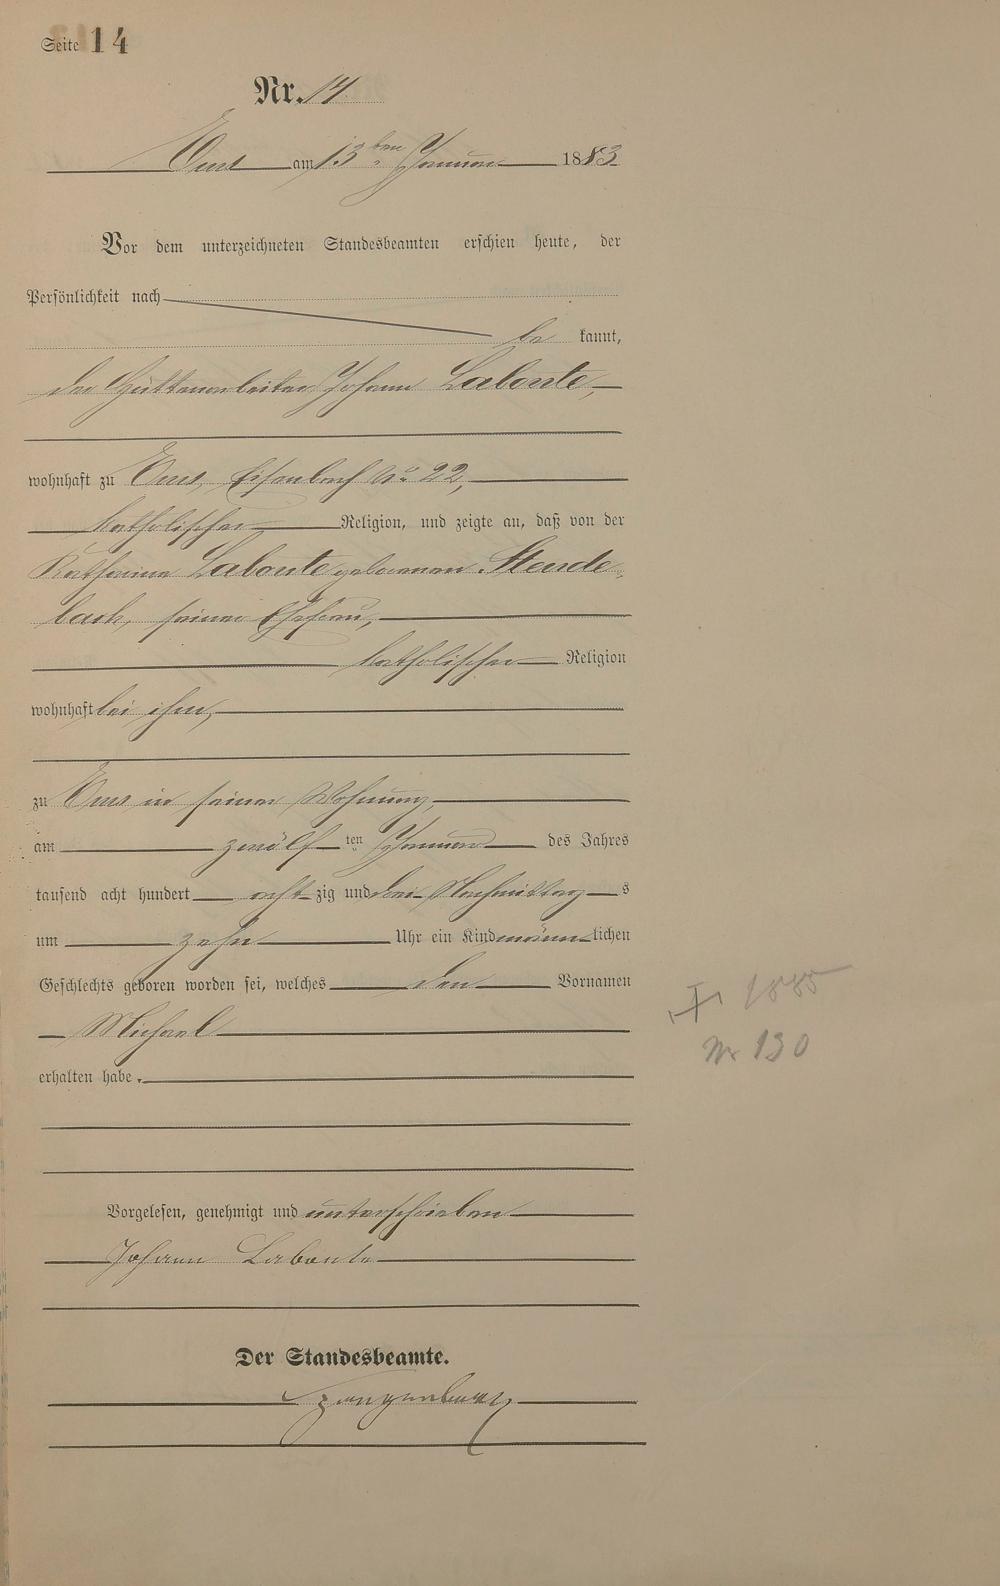 Seite 14
Nr. 14
Ems am 13ten Januar 1883
Vor dem unterzeichneten Standesbeamten erschien heute, der
Persönlichkeit nach
be kannt,
der Hüttenarbeiter Johann Labonte,
wohnhaft zu Ems, Eisenbach No 22,
katholischer Religion, und zeigte an, daß von der
Katharina Labonte geborenen Stende-
bach, seiner Ehefrau,
katholischer Religion
wohnhaft bei ihm,
zu Ems in seiner Wohnung
am zwölf ten Januar des Jahres
tausend acht hundert acht zig und drei Nachmittag s
um zehn Uhr ein Kind männ lichen
Geschlechts geboren worden sei, welches den Vornamen
Michael
erhalten habe.
1885
Nr 130
Vorgelesen, genehmigt und unterschrieben
Johann Labonte
Der Standesbeamte.